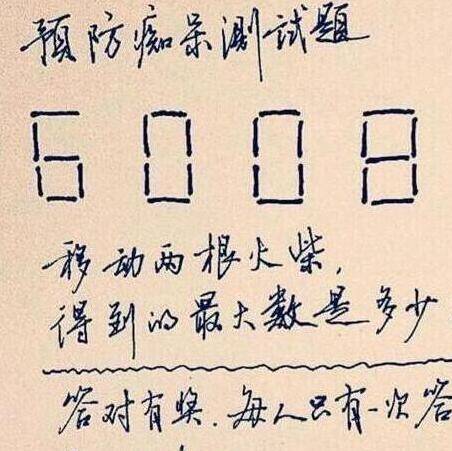 预防痴呆测试题
6008
移动两根火柴,
得到的最大数是多少
答对有奖.每人只有一次答